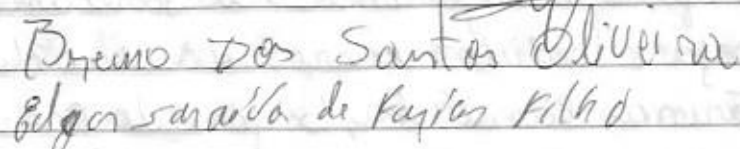 Bruno Dos Santos Oliveira
Edgar saraiva de Farias Filho